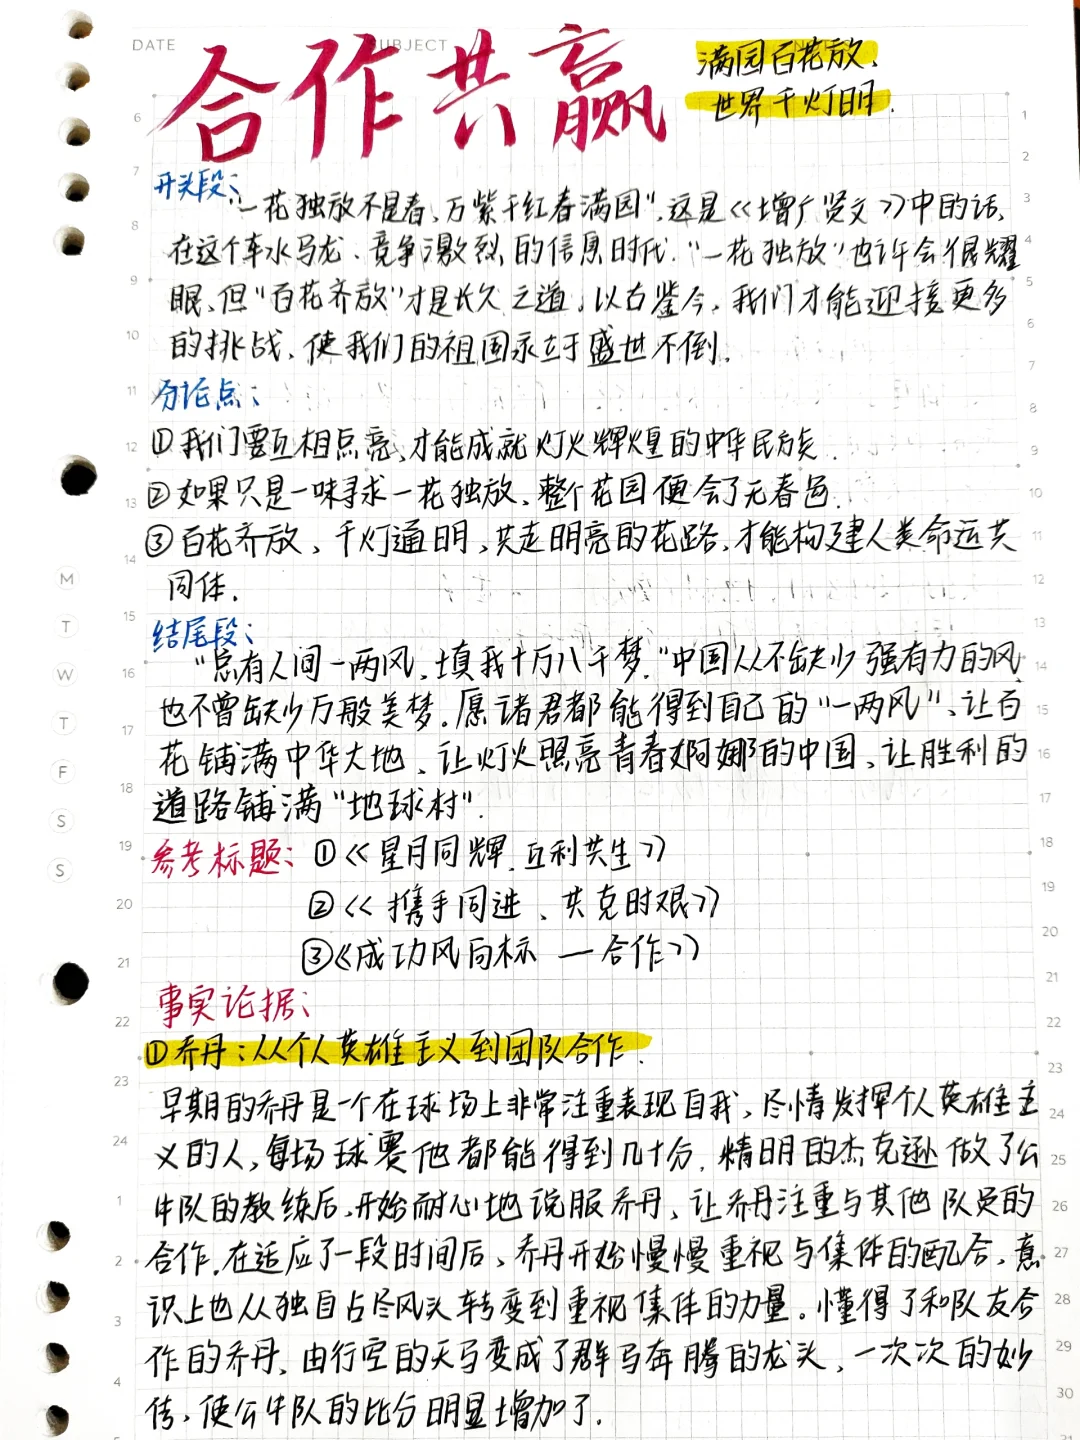 DATE
SUBJECT
合作共赢
满园百花放、
世界千灯明.
开头段:
"一花独放不是春,万紫千红春满园",这是《增广贤文》中的话,
在这个车水马龙、竞争激烈的信息时代."一花独放"也许会很耀
眼,但"百花齐放"才是长久之道,以古鉴今,我们才能迎接更多
的挑战,使我们的祖国永立于盛世不倒.
分论点:
①我们要互相点亮,才能成就灯火辉煌的中华民族.
②如果只是一味寻求一花独放,整个花园便会了无春色.
③百花齐放,千灯通明,共走明亮的花路,才能构建人类命运共
同体.
结尾段:
"总有人间一两风,填我十万八千梦."中国从不缺少强有力的风,
也不曾缺少万般美梦.愿诸君都能得到自己的"一两风",让百
花铺满中华大地、让灯火照亮青春婀娜的中国、让胜利的
道路铺满"地球村".
参考标题: ①《星月同辉,互利共生》
②《携手同进、共克时艰》
③《成功风向标 — 合作》
事实论据:
①乔丹:从个人英雄主义到团队合作.
早期的乔丹是一个在球场上非常注重表现自我,尽情发挥个人英雄主
义的人,每场球赛他都能得到几十分.精明的杰克逊做了公
牛队的教练后,开始耐心地说服乔丹,让乔丹注重与其他队员的
合作.在适应了一段时间后,乔丹开始慢慢重视与集体的配合,意
识上也从独自占尽风头转变到重视集体的力量。懂得了和队友合
作的乔丹,由行空的天马变成了群马奔腾的龙头,一次次的妙
传,使公牛队的比分明显增加了.
M
T
W
T
F
S
S